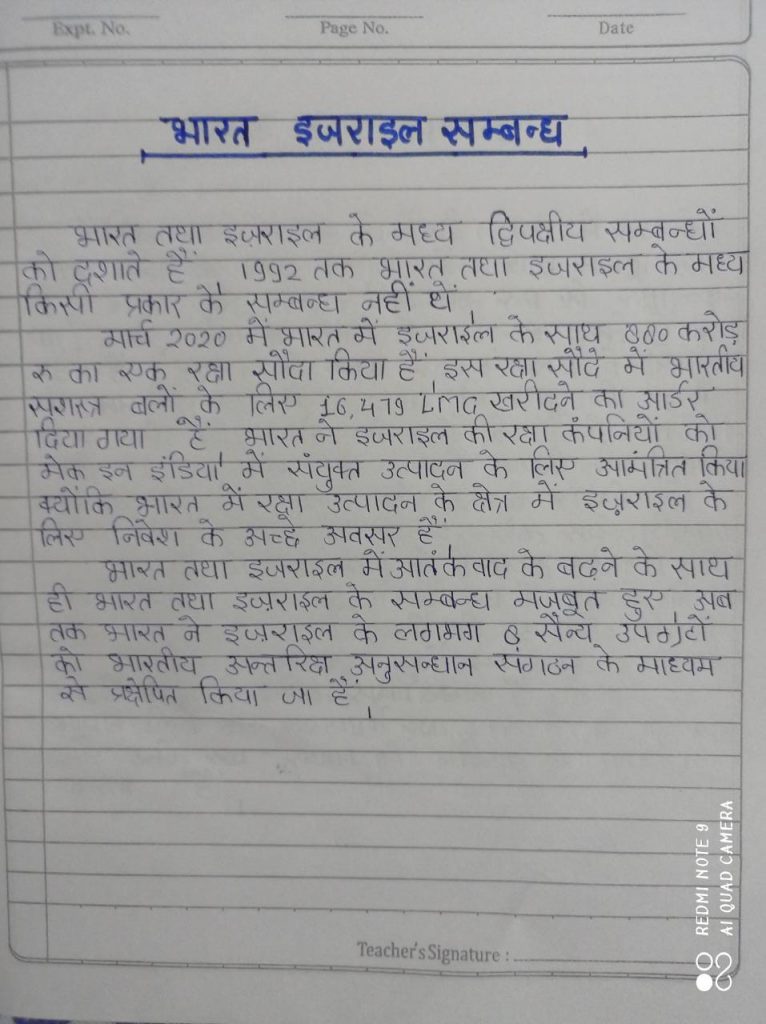 Expt. No.
Page No.
Date
भारत इजराइल सम्बन्ध
भारत तथा इज़राइल के मध्य द्विपक्षीय सम्बन्धों
को दर्शाते हैं 1992 तक भारत तथा इजराइल के मध्य
किसी प्रकार के सम्बन्ध नहीं थें।
मार्च 2020 में भारत में इजराइल के साथ 880 करोड़
रु का एक रक्षा सौदा किया हैं। इस रक्षा सौदे में भारतीय
सशस्त्र बलों के लिए 16,479 LMG खरीदने का आर्डर
दिया गया हैं। भारत ने इजराइल की रक्षा कंपनियों को
मेक इन इंडिया में संयुक्त उत्पादन के लिए आमंत्रित किया
क्योंकि भारत में रक्षा उत्पादन के क्षेत्र में इज़राइल के
लिए निवेश के अच्छे अवसर हैं।
भारत तथा इजराइल में आतंकवाद के बढ़ने के साथ
ही भारत तथा इज़राइल के सम्बन्ध मजबूत हुए अब
तक भारत ने इज़राइल के लगभग 8 सैन्य उपग्रहों
को भारतीय अन्तरिक्ष अनुसन्धान संगठन के माध्यम
से प्रक्षेपित किया जा हैं।
Teacher's Signature :
REDMI NOTE 9
AI QUAD CAMERA